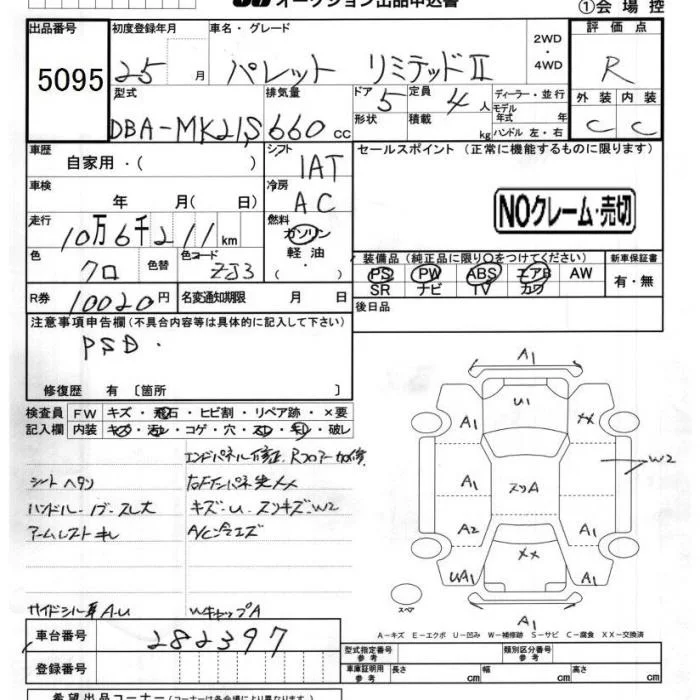 オークション出品申込書
①会場控
出品番号 5095
初度登録年月 25 月
車名・グレード パレット リミテッドⅡ
2WD・4WD
評価点 R
外装 C 内装 C
型式 DBA-MK21S
排気量 660 cc
ドア 5 形状
定員 4 人 積載 kg
ディーラー・並行
モデル年式 年
ハンドル 左・右
車歴 自家用・( )
シフト IAT
車検 年 月( 日)
冷房 AC
セールスポイント(正常に機能するものに限ります)
NOクレーム・売切
走行 10万6千211km
燃料 ガソリン 軽油・( )
色 クロ 色替 色コード ZJ3
装備品(純正品に限り○をつけてください)
PS PW ABS エアB AW
SR ナビ TV カワ
新車保証書 有・無
R券 10020円
名変通知期限 月 日
後日品
注意事項申告欄(不具合内容等は具体的に記入して下さい)
PSD.
修復歴 有〔箇所 〕
検査員記入欄
FW キズ・飛石・ヒビ割・リペア跡・×要
内装 キズ・汚れ・コゲ・穴・スレ・キレ・破レ
エンドパネル修正、Rフロアー加修
シートヘタリ
ハンドル・ノブ・スレ大
キズ・U・スリキズW2
アームレストキレ
A/C冷エズ
A1
U1
A1 XX
W2
A1 スリA
A2 XX A1
UA1 A1
スペア
A1
A-キズ E-エクボ U-凹み W-補修跡 S-サビ C-腐食 XX-交換済
車台番号 282397
登録番号
型式指定番号 参考
類別区分番号 参考
車庫証明用 参考 長さ cm 幅 cm 高さ cm
希望出品コーナー